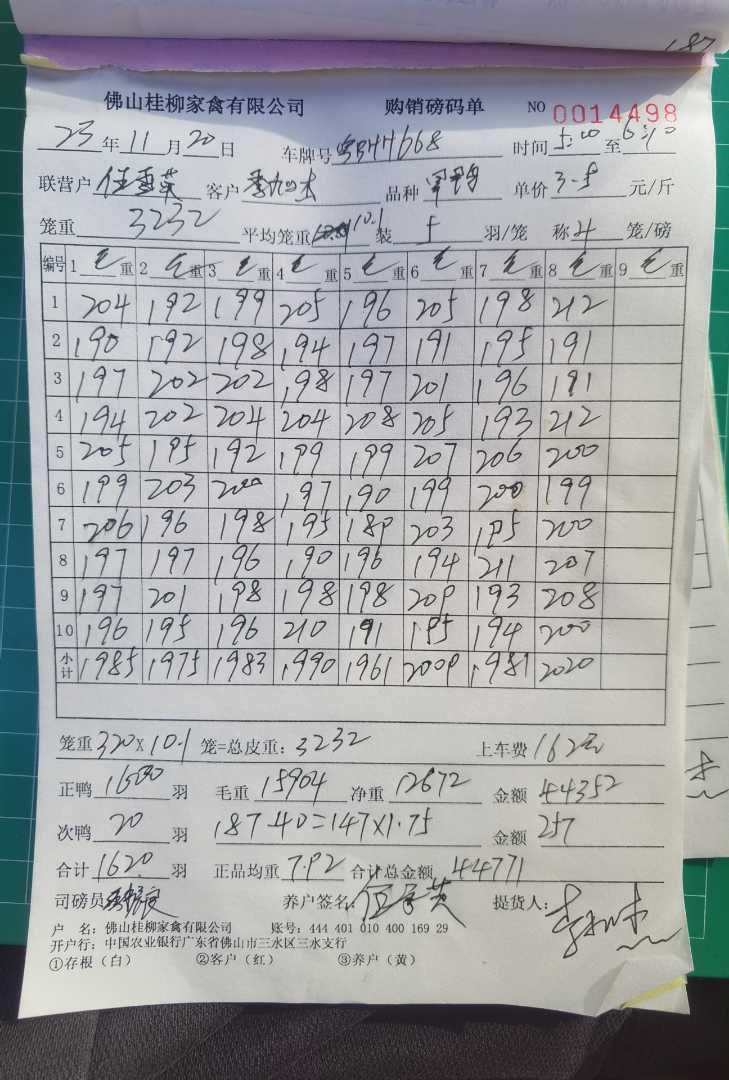 187
佛山桂柳家禽有限公司 购销磅码单 NO 0014498
23年11月20日 车牌号 44668 时间5:00至6:10
联营户 客户 品种 单价3.5元/斤
笼重3232 平均笼重10.1装5羽/笼 称4笼/磅
编号 1毛重 2毛重 3毛重 4毛重 5毛重 6毛重 7毛重 8毛重 9毛重
1 204 192 199 205 196 205 198 212
2 190 192 198 194 197 191 195 191
3 197 202 202 198 197 201 196 191
4 194 202 204 204 208 205 193 212
5 205 195 192 199 199 207 206 200
6 199 203 200 197 190 199 200 199
7 206 196 198 195 189 203 195 200
8 197 197 196 190 196 194 211 207
9 197 201 198 198 198 209 193 208
10 196 195 196 210 191 195 194 200
小计 1985 1975 1983 1990 1961 2009 1981 2020
笼重320×10.1笼=总皮重:3232 上车费162元
正鸭1600羽 毛重15904净重12672 金额44352
次鸭20羽 187-40=147×1.75 金额257
合计1620羽 正品均重7.92合计总金额44771
司磅员 养户签名: 提货人:
户 名:佛山桂柳家禽有限公司 账号:444 401 010 400 169 29
开户行:中国农业银行广东省佛山市三水区三水支行
①存根(白) ②客户(红) ③养户(黄)